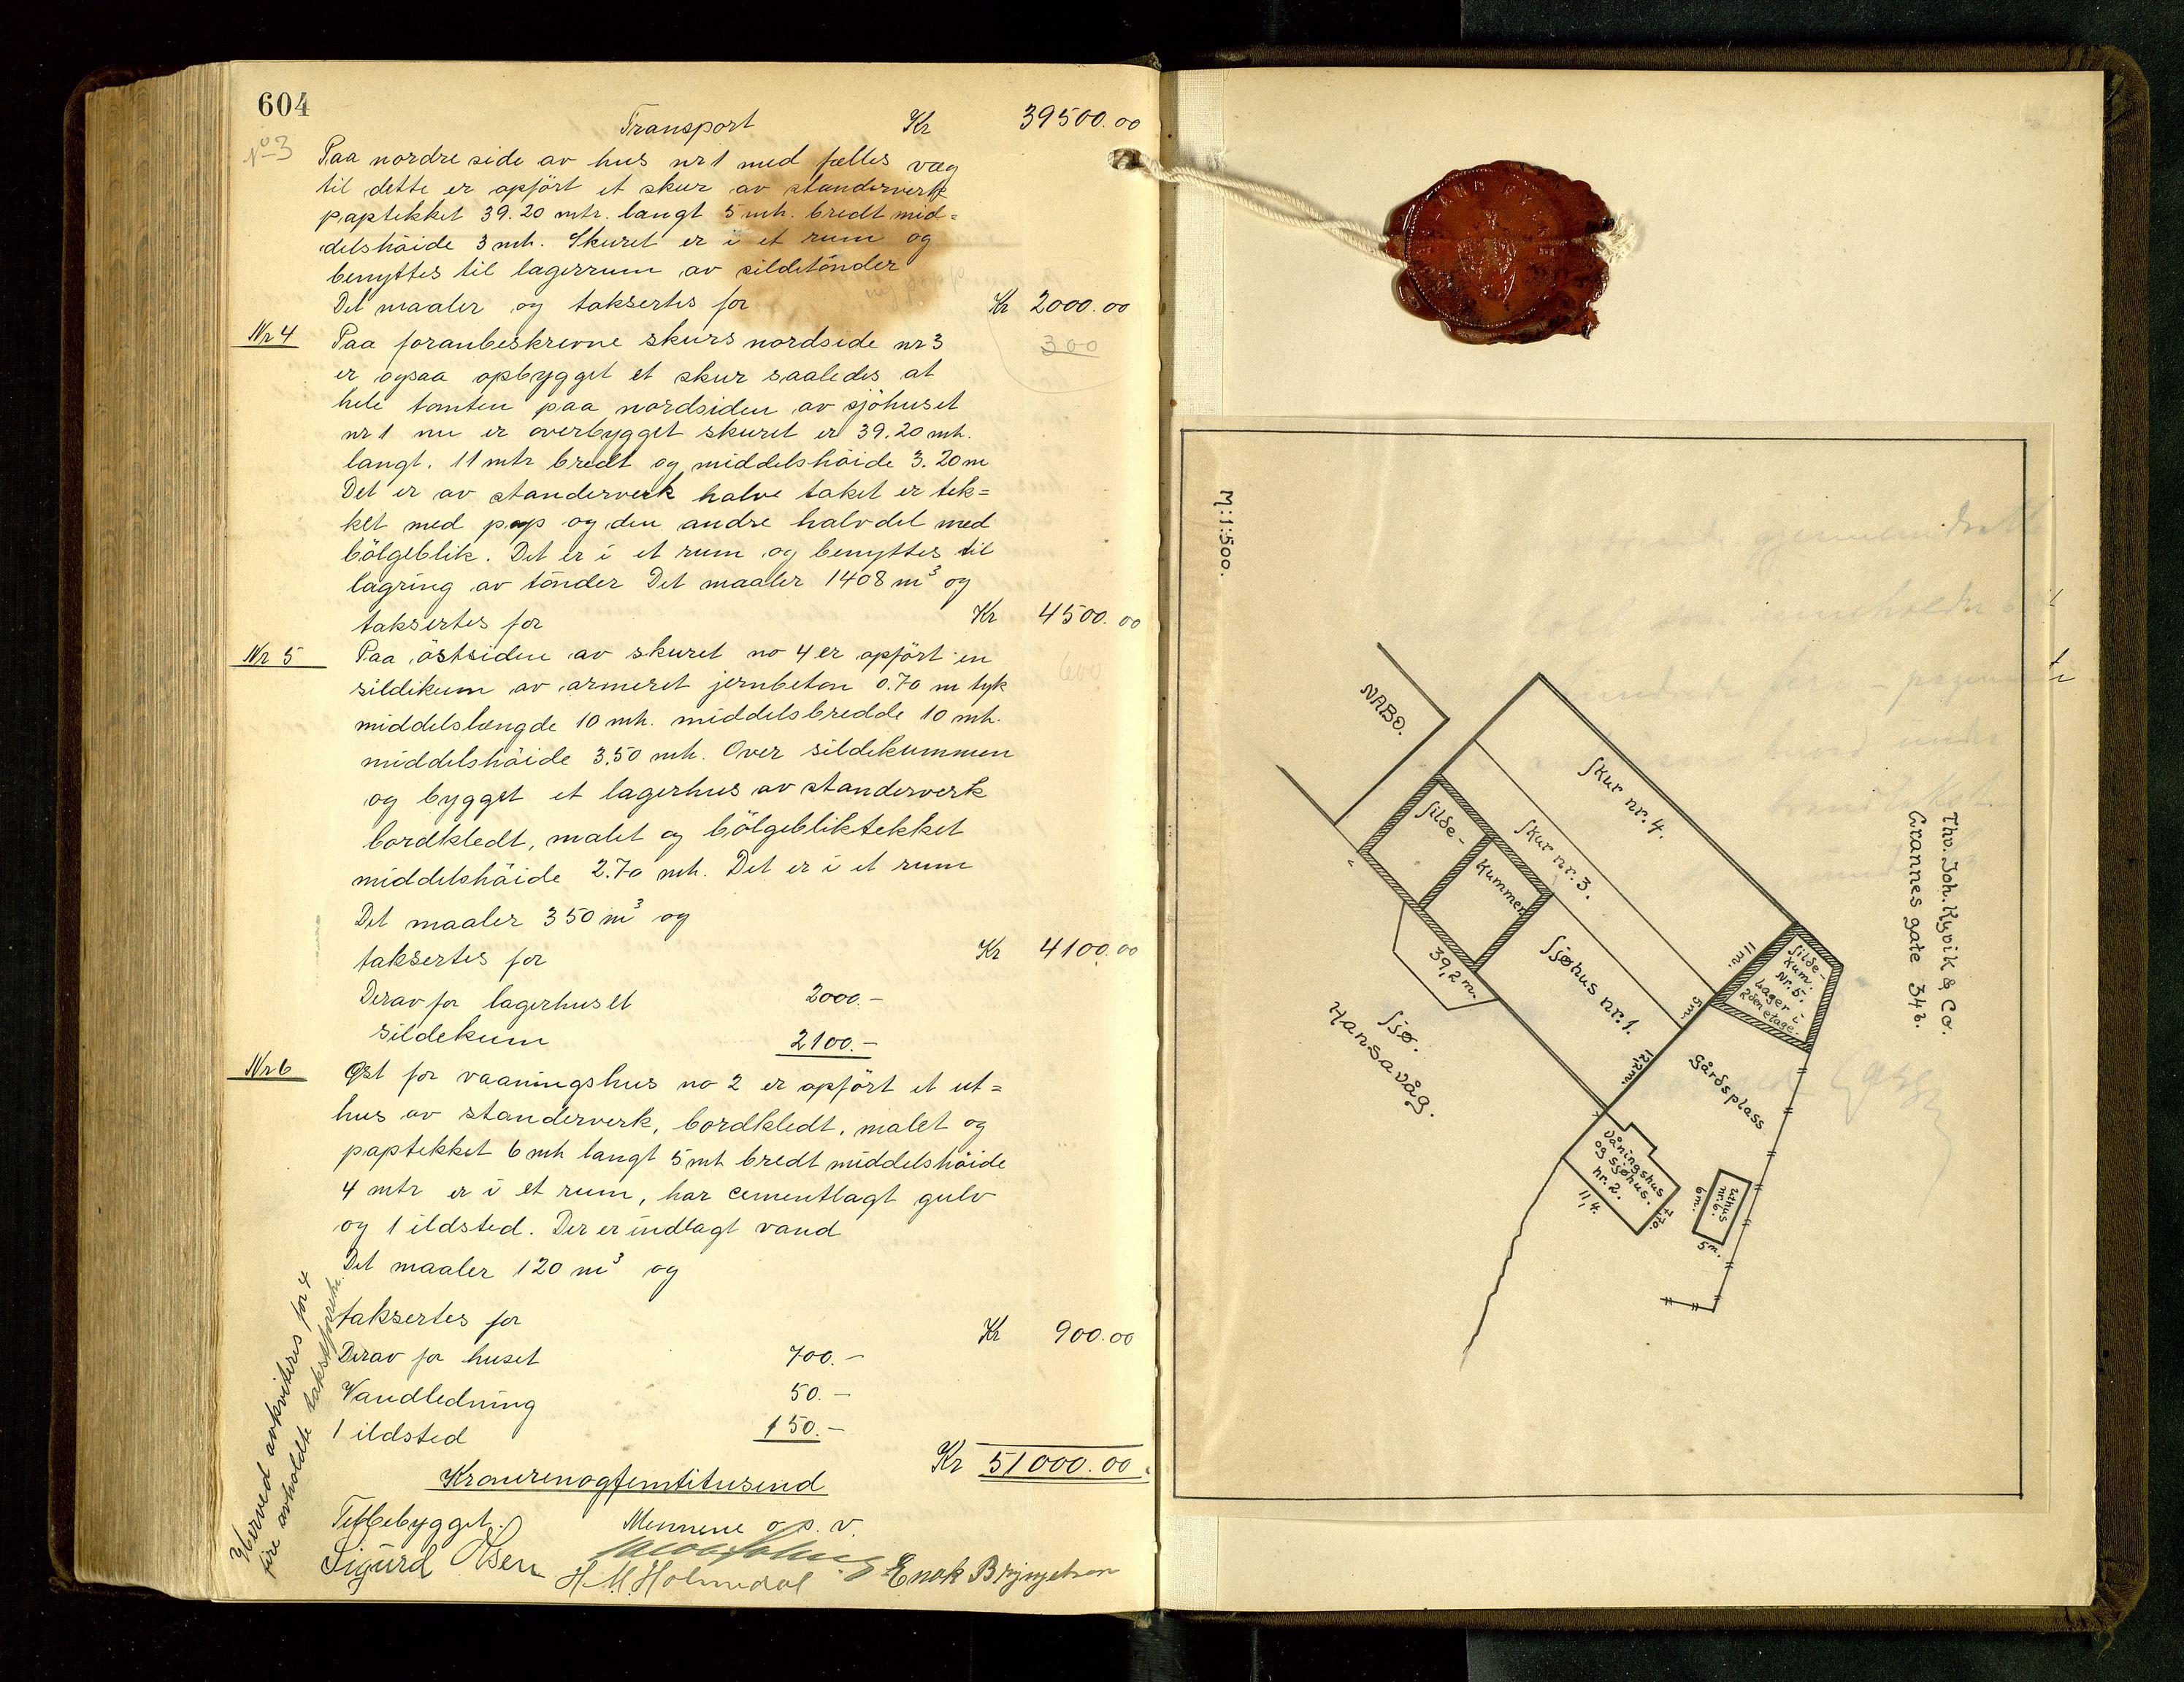 604
Transport Kr 39500.00
No 3
Paa nordre side av hus nr 1 med fælles væg
til dette er opført et skur av standerverk
paptekket 39.20 mtr. langt 5 mtr. bredt mid=
delshöide 3 mtr. Skuret er i et rum og
benyttes til lagerrum av sildetönder
Det maaler og taksertes for Kr 2000.00
300
Nr 4 Paa foranbeskrevne skurs nordside nr 3
er ogsaa opbygget et skur saaledes at
hele tomten paa nordsiden av sjöhuset
nr 1 nu er overbygget skuret er 39.20 mtr.
langt. 11 mtr bredt og middelshöide 3.20 m
Det er av standerverk halve taket er tek=
ket med pap og den andre halvdel med
bölgeblik. Det er i et rum og benyttes til
lagring av tönder Det maaler 1408 m³ og
taksertes for Kr 4500.00
600
Nr 5 Paa östsiden av skuret no 4 er opfört en
sildikum av armeret jernbeton 0.70 m tyk
middelslængde 10 mtr. middelsbredde 10 mtr.
middelshöide 3.50 mtr. Over sildekummen
og bygget et lagerhus av standerverk
bordkledt, malet og bölgebliktekket
middelshöide 2.70 mtr. Det er i et rum
Det maaler 350 m³ og
taksertes for Kr 4100.00
Derav for lagerhuset 2000.-
sildekum 2100.-
Nr 6 Øst for vaaningshus no 2 er opfört et ut=
hus av standerverk, bordkledt, malet og
paptekket 6 mtr langt 5 mtr bredt middelshöide
4 mtr er i et rum, har cementlagt gulv
og 1 ildsted. Der er indlagt vand
Det maaler 120 m³ og
taksertes for Kr 900.00
Derav for huset 700.-
Vandledning 50.-
1 ildsted 150.-
Kr 51000.00
Kronerenogfemtitusend
Tettbebygget. Mennene op. v.
Sigurd Olsen
H. M. Holmedal Enok Bryngelsen
Herved avkviteres for 4
fire avholdte takstforretn.
M:1:500.
Thv. Joh. Kyvik & Co.
Grannes gate 34b.
NABO.
Skur nr. 4.
Skur nr. 3.
Silde-
Kummer
Sjøhus nr. 1.
39,2 m.
11 m.
5 m.
12,2 m.
Silde-
Kum.
Nr. 5.
Lager i
2den etage.
Gårdsplass
Sjø.
Hansavåg.
Våningshus
og sjøhus.
nr. 2.
11,4.
7,70.
uthus
nr. 6.
6 m.
5 m.